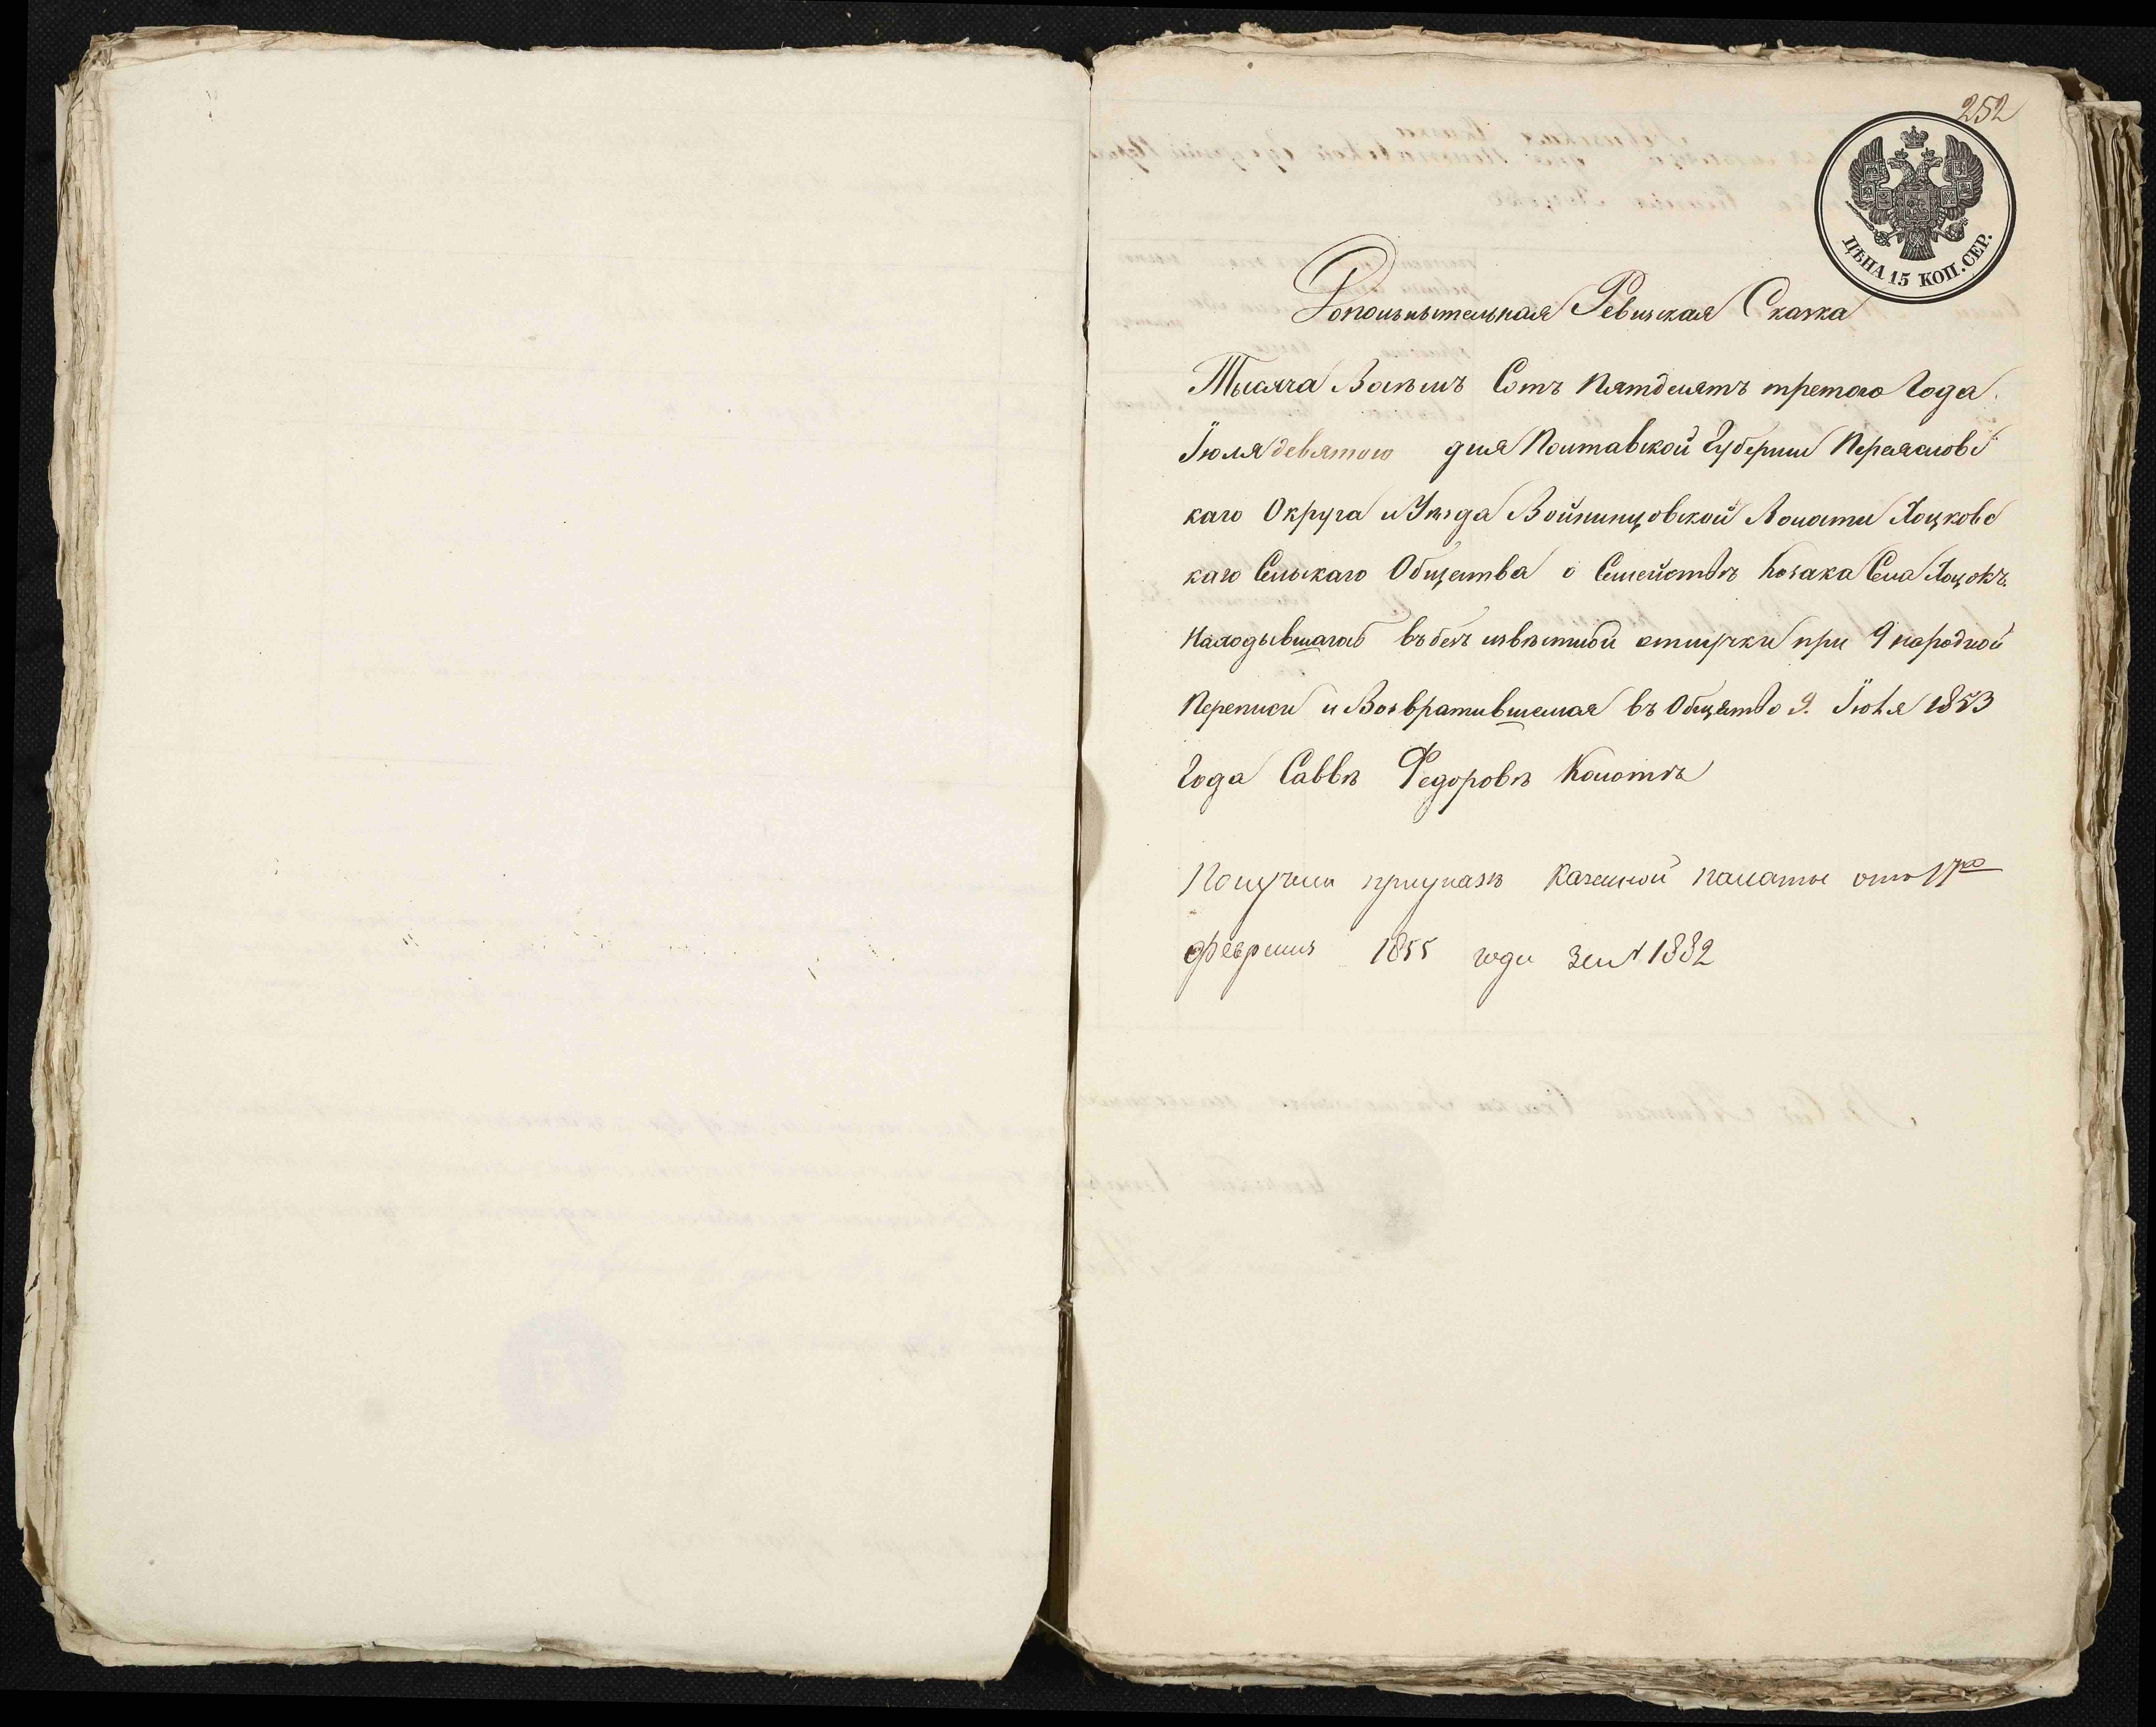 252
ЦѢНА 15 КОП. СЕР.
Дополнытельная Ревизская Сказка
Тысяча Восѣмъ Сотъ Пятдесятъ третого Года.
Іюля девятого дня Полтавской Губернии Переяславс
каго Округа и Уѣзда Войнинцовской Волости Хоцковс
каго Сельскаго Общества о Семействѣ Козака Села Хоцокъ.
Находывшагось въ безъ извѣстной отлучки при 9 народной
Переписи и Возвратившемся въ Общество 9. Іюля 1853
Года Саввѣ Федоровѣ Колотѣ
Получен при указѣ Казенной палаты отъ 17го
февраля 1855 года за № 1882